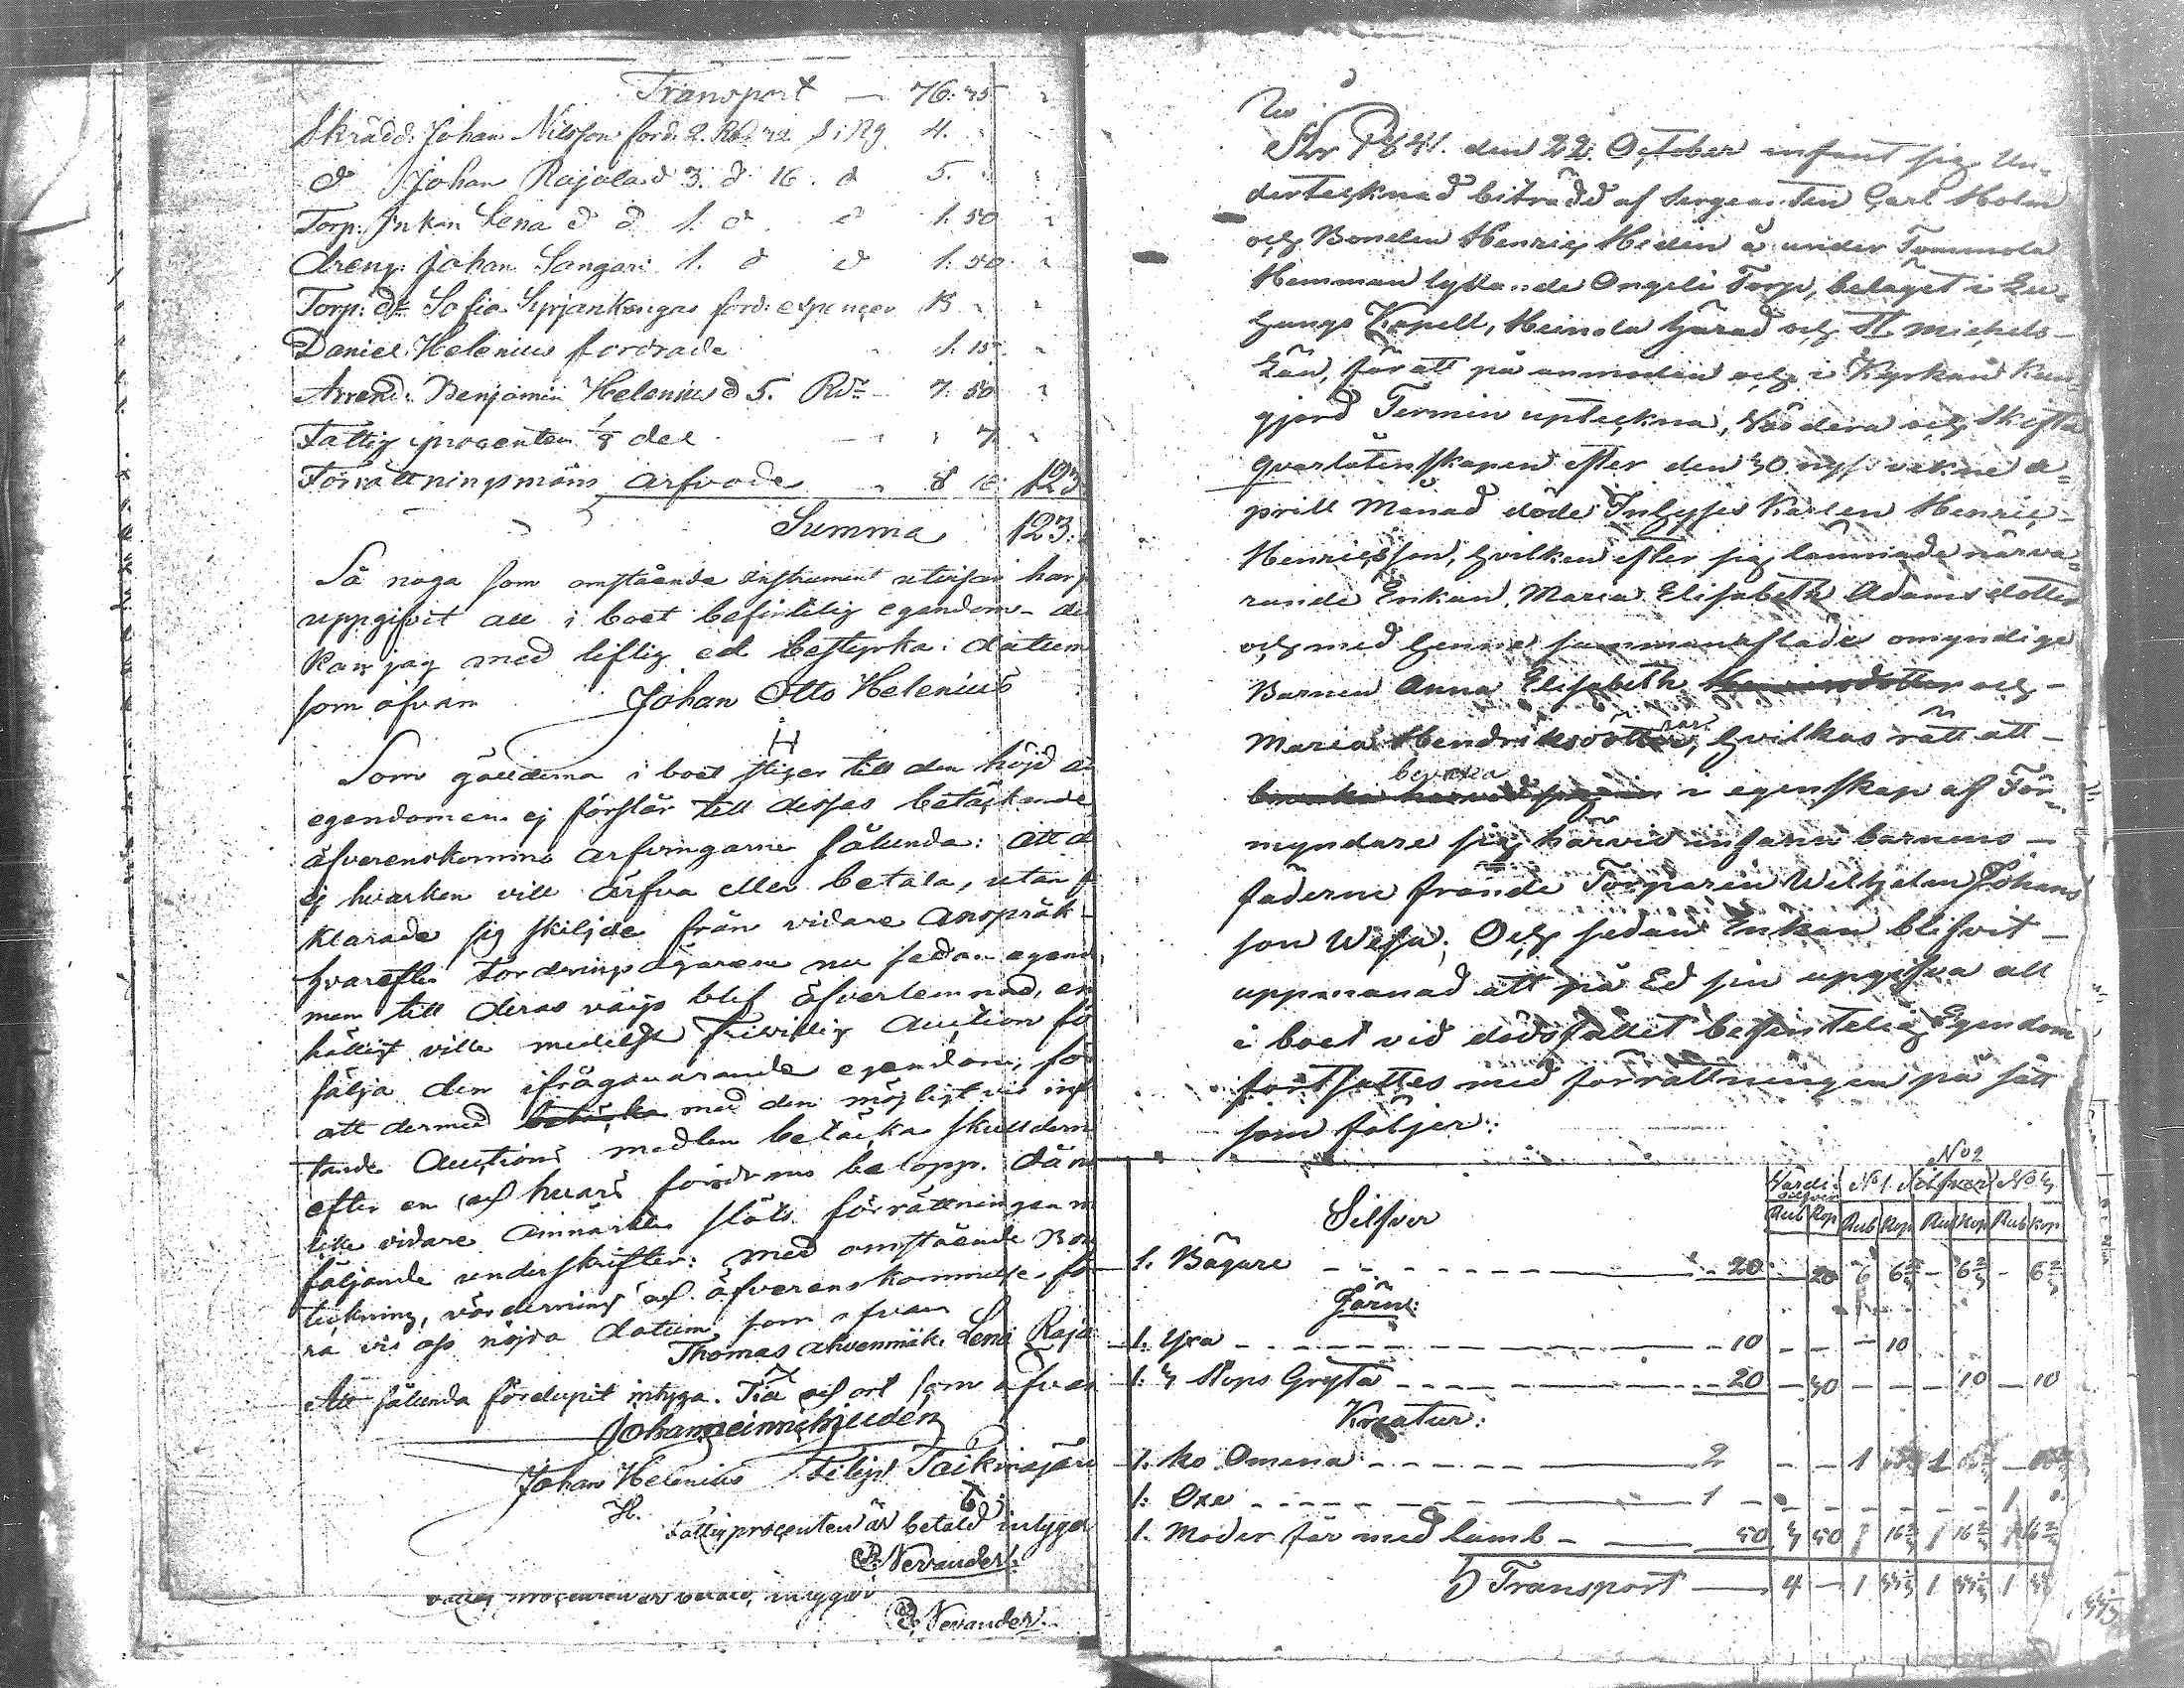 Transport — 76. 75
Skrädd. Johan Nilsson ford. 2. Rd 72 4.
d Johan Rajala d 3. d 16. d 5.
Torp. Enkan Lena d d 1. d d 1. 50
dreng. Johan Sangari 1. d d 1. 50
Torp. Sofia ford. expenser
Daniel Helenius fordrade 1. 15
Arrend. Benjamin Helenius d 5. Rdr 7. 50
Fattig procenten 1/8 del 7
Förrättningsmäns arfvode 8 10 123
Summa 123.
Så noga som omstående instrument utvisar har
uppgifvit all i boet befintlig egendom - de
kan jag med liflig ed bestyrka. datum
som ofvan Johan Otto Helenius
H
Som gälderna i boet stiger till den höjd at
egendomen ej förslår till desses betäckande
öfverenskommo arfvingarne sålunda: att d
ej hvarken vill ärfva eller betala, utan f
klarade sig skiljde från vidare anspråk -
hvarefter fordringsägarene nu sedan egend
men till deras värjo blef öfverlemnad, en
hälligt ville medelst frivillig auction för
sälja den ifrågavarande egendom, för
att dermed betäcka med den möjligtvis infl
tande Auctions medlen betäcka skulderna
efter en och hvars fordrans belopp. Då in
tte vidare anmärktes slöts förrättningen m
följande underskrifter: med omstående Bou
teckning, värdering och öfverenskommelse för
ra vi oss nöjda datum som ofvan
Thomas Lena Raja
Att sålunda förelupit intyga. Tid och ort som ofvan
Johan
Johan Helenius Filip
H.
Fattigprocenten är betald intygar
Nervander.
Fattig procenten är betald, intygar
Nervander.
År 1841. den 22. October infant sig Un-
dertecknad biträdd af Sergeanten Carl Holm
och Bonden Henric Hedin å under Tommola
Hemman lydande Ongeli Torp, beläget i
Kapell, Heinola härad och St Michels
Län, för att på anmodan och i Kyrkan kun-
gjord Termin upteckna, värdera och skifta
qvarlåtenskapen efter den 30 nyss vekne A-
prill Månad döde Inhyses Karlen Henric
Henricsson, hvilken efter sig lämnade närva-
rande Enkan Maria Elisabeth Adamsdotter
och med henne sammanaflade omyndige
Barnen Anna Elisabeth Henricsdotter och -
Maria Hendriksdöttrar, hvilkas rätt att -
bevaka
i egenskap af För-
myndare sig härvid infann barnens -
faderne frände Torparen Wilhelm Johans
son Wesa; Och sedan Enkan blifvit -
uppmanad att på Ed sin uppgifva all
i boet vid dödsfallet befintelig Egendom
fortsattes med förrättningen på sätt
som följer:
No 2
Värdi silfver No 1. Silfver No 3
Rub Kop Rub Kop Rub Kop Rub Kop
Silfver
1. Bägare 20 — 20 6 6 2/3 — 6 2/3 — 6 2/3
Järn:
1. Yxa 10 — — — 10
1. 3 Stops Gryta 20 — 30 — — — 10 — 10
Kreatur:
1. ko Omena 2 — — 1 1
1. Oxe 1 — — — — — — 1
1. Moder får med lamb 50 3 50 1 16 2/3 1 16 2/3 1 16 2/3
Transport 4 — 1 33 1/3 1 33 1/3 1 33